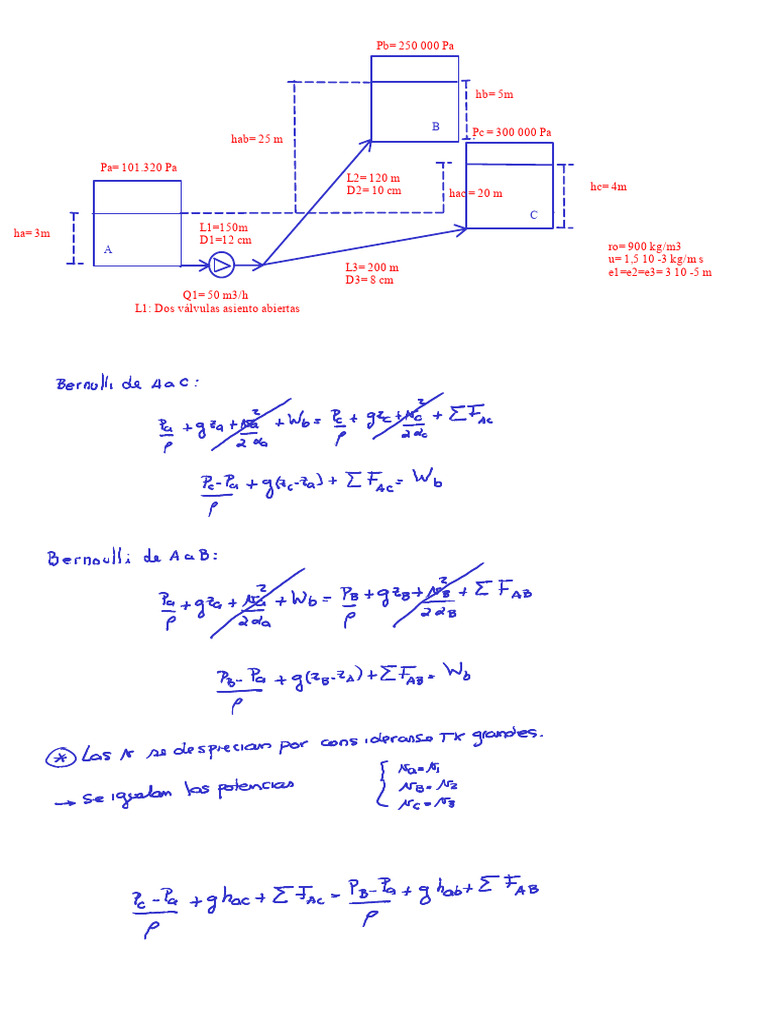 Pb= 250 000 Pa
hb= 5m
B
hab= 25 m
Pc = 300 000 Pa
Pa= 101.320 Pa
L2= 120 m
D2= 10 cm
hac = 20 m
hc= 4m
C
ha= 3m
A
L1=150m
D1=12 cm
ro= 900 kg/m3
u= 1,5 10 -3 kg/m s
e1=e2=e3= 3 10 -5 m
L3= 200 m
D3= 8 cm
Q1= 50 m3/h
L1: Dos válvulas asiento abiertas
Bernulli de A a C:
Pa/ρ + g za + va²/2αa + Wb = Pc/ρ + g zc + vc²/2αc + ΣFAC
Pc-Pa/ρ + g(zc-za) + ΣFAC = Wb
Bernoulli de A a B:
Pa/ρ + g za + va²/2αa + Wb = PB/ρ + g zB + vB²/2αB + ΣFAB
PB-Pa/ρ + g(zB-zA) + ΣFAB = Wb
* Las v se desprecian por considerarse TK grandes.
→ se igualan las potencias
va=v1
vB=v2
vc=v3
Pc-Pa/ρ + g hac + ΣFAC = PB-Pa/ρ + g hab + ΣFAB